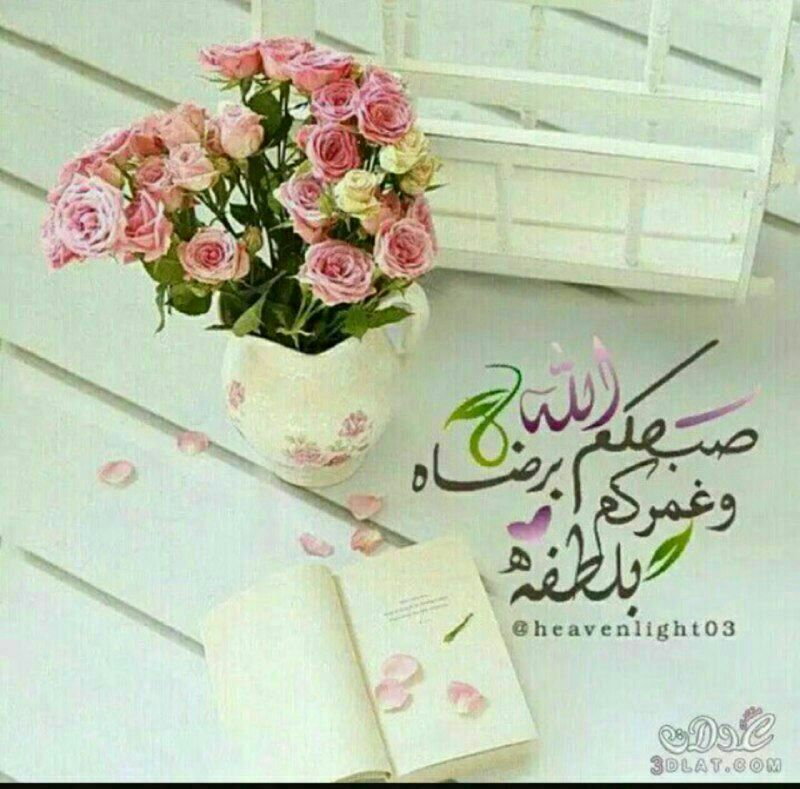 صبحكم الله برضاه
وغمركم
بلطفه
@heavenlight03
عدلات
3DLAT.COM